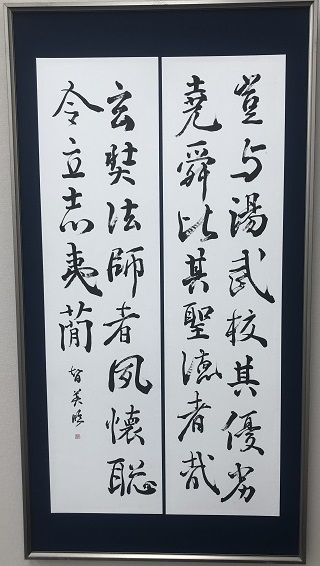 豈与湯武校其優劣
堯舜比其聖徳者哉
玄奘法師者夙懐聡
令立志夷簡